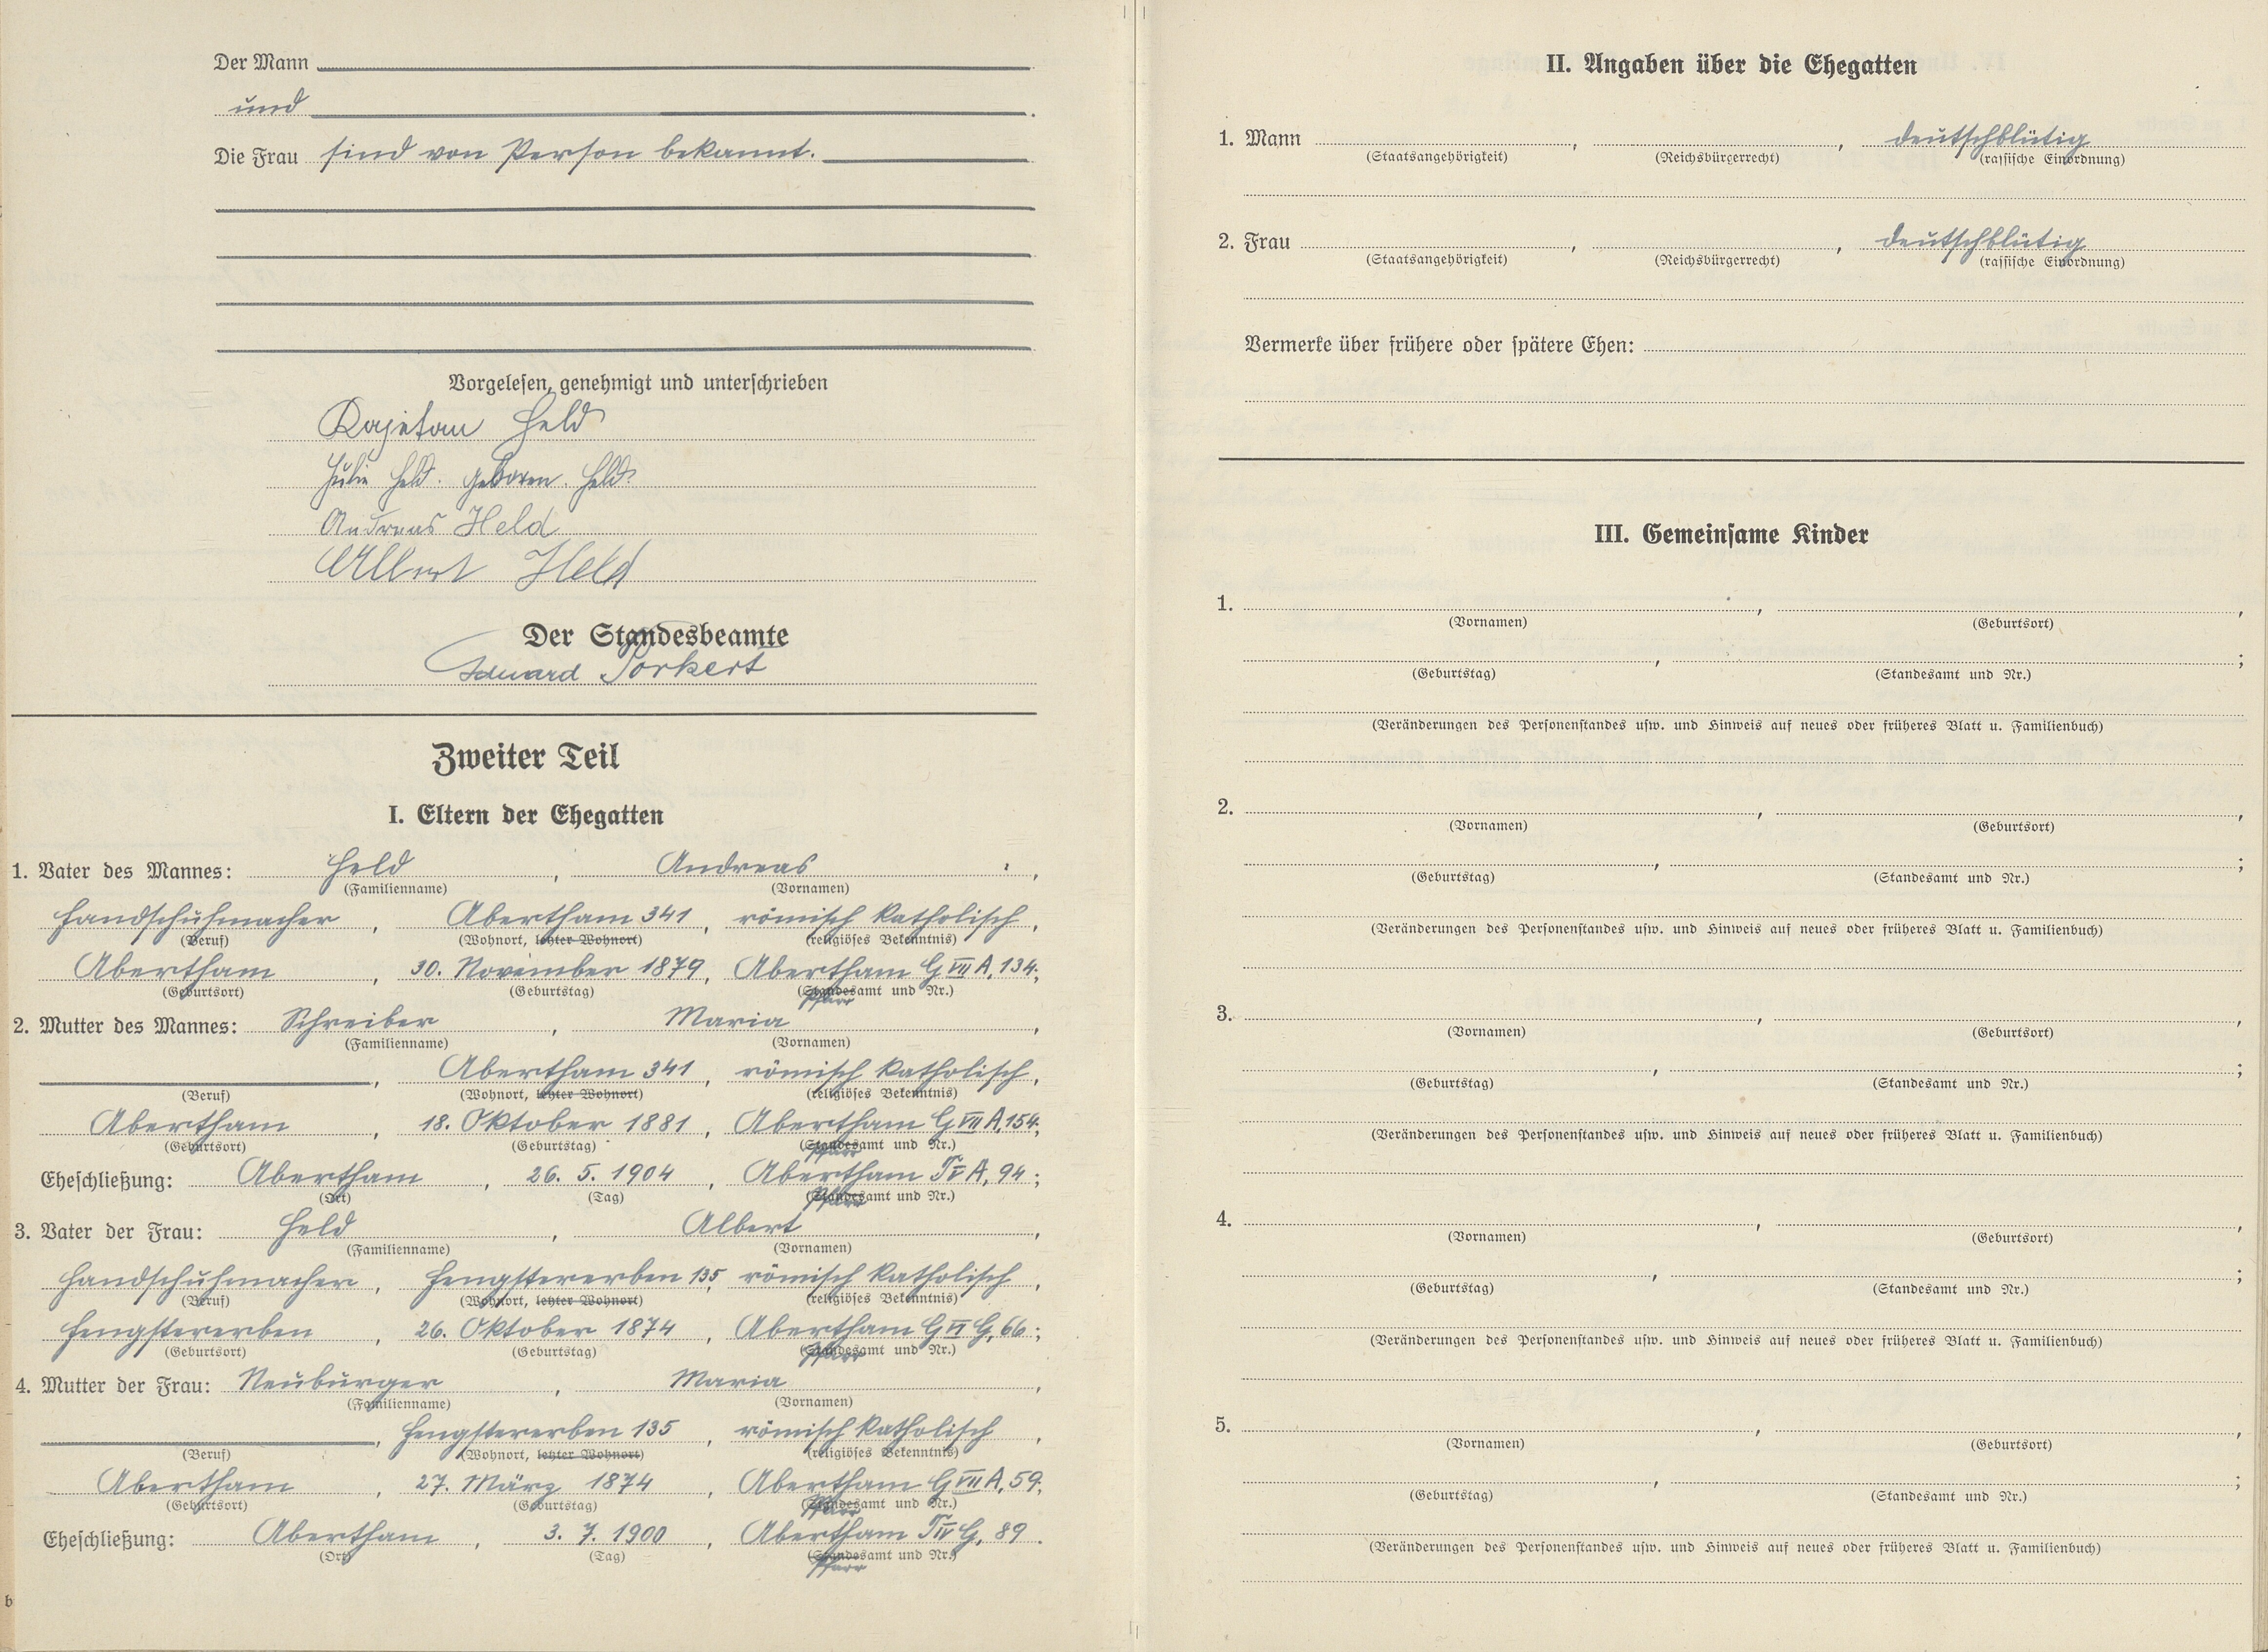 Der Mann
und
Die Frau sind von Person bekannt.
Vorgelesen, genehmigt und unterschrieben
Kajetan Held
Julie Held. geboren. Held.
Andreas Held
Albert Held
Der Standesbeamte
Eduard Porkert
Zweiter Teil
I. Eltern der Ehegatten
1. Vater des Mannes: Held, Andreas,
(Familienname) (Vornamen)
Handschuhmacher, Abertham 341, römisch katholisch,
(Beruf) (Wohnort, letzter Wohnort) (religiöses Bekenntnis)
Abertham, 30. November 1879, Abertham G VII A, 134;
(Geburtsort) (Geburtstag) (Standesamt und Nr.)
Pfarr
2. Mutter des Mannes: Schreiber, Maria,
(Familienname) (Vornamen)
, Abertham 341, römisch katholisch,
(Beruf) (Wohnort, letzter Wohnort) (religiöses Bekenntnis)
Abertham, 18. Oktober 1881, Abertham G VII A, 154;
(Geburtsort) (Geburtstag) (Standesamt und Nr.)
Pfarr
Eheschließung: Abertham, 26. 5. 1904, Abertham T V A, 94;
(Ort) (Tag) (Standesamt und Nr.)
Pfarr
3. Vater der Frau: Held, Albert,
(Familienname) (Vornamen)
Handschuhmacher, Hengstererben 135, römisch katholisch,
(Beruf) (Wohnort, letzter Wohnort) (religiöses Bekenntnis)
Hengstererben, 26. Oktober 1874, Abertham G VI G, 66;
(Geburtsort) (Geburtstag) (Standesamt und Nr.)
Pfarr
4. Mutter der Frau: Neuburger, Maria,
(Familienname) (Vornamen)
, Hengstererben 135, römisch katholisch,
(Beruf) (Wohnort, letzter Wohnort) (religiöses Bekenntnis)
Abertham, 27. März 1874, Abertham G VII A, 59;
(Geburtsort) (Geburtstag) (Standesamt und Nr.)
Pfarr
Eheschließung: Abertham, 3. 7. 1900, Abertham T IV G, 89.
(Ort) (Tag) (Standesamt und Nr.)
Pfarr
b
II. Angaben über die Ehegatten
1. Mann , , deutschblütig
(Staatsangehörigkeit) (Reichsbürgerrecht) (rassische Einordnung)
2. Frau , , deutschblütig
(Staatsangehörigkeit) (Reichsbürgerrecht) (rassische Einordnung)
Vermerke über frühere oder spätere Ehen:
III. Gemeinsame Kinder
1. , ,
(Vornamen) (Geburtsort)
, ;
(Geburtstag) (Standesamt und Nr.)
(Veränderungen des Personenstandes usw. und Hinweis auf neues oder früheres Blatt u. Familienbuch)
2. , ,
(Vornamen) (Geburtsort)
, ;
(Geburtstag) (Standesamt und Nr.)
(Veränderungen des Personenstandes usw. und Hinweis auf neues oder früheres Blatt u. Familienbuch)
3. , ,
(Vornamen) (Geburtsort)
, ;
(Geburtstag) (Standesamt und Nr.)
(Veränderungen des Personenstandes usw. und Hinweis auf neues oder früheres Blatt u. Familienbuch)
4. , ,
(Vornamen) (Geburtsort)
, ;
(Geburtstag) (Standesamt und Nr.)
(Veränderungen des Personenstandes usw. und Hinweis auf neues oder früheres Blatt u. Familienbuch)
5. , ,
(Vornamen) (Geburtsort)
, ;
(Geburtstag) (Standesamt und Nr.)
(Veränderungen des Personenstandes usw. und Hinweis auf neues oder früheres Blatt u. Familienbuch)